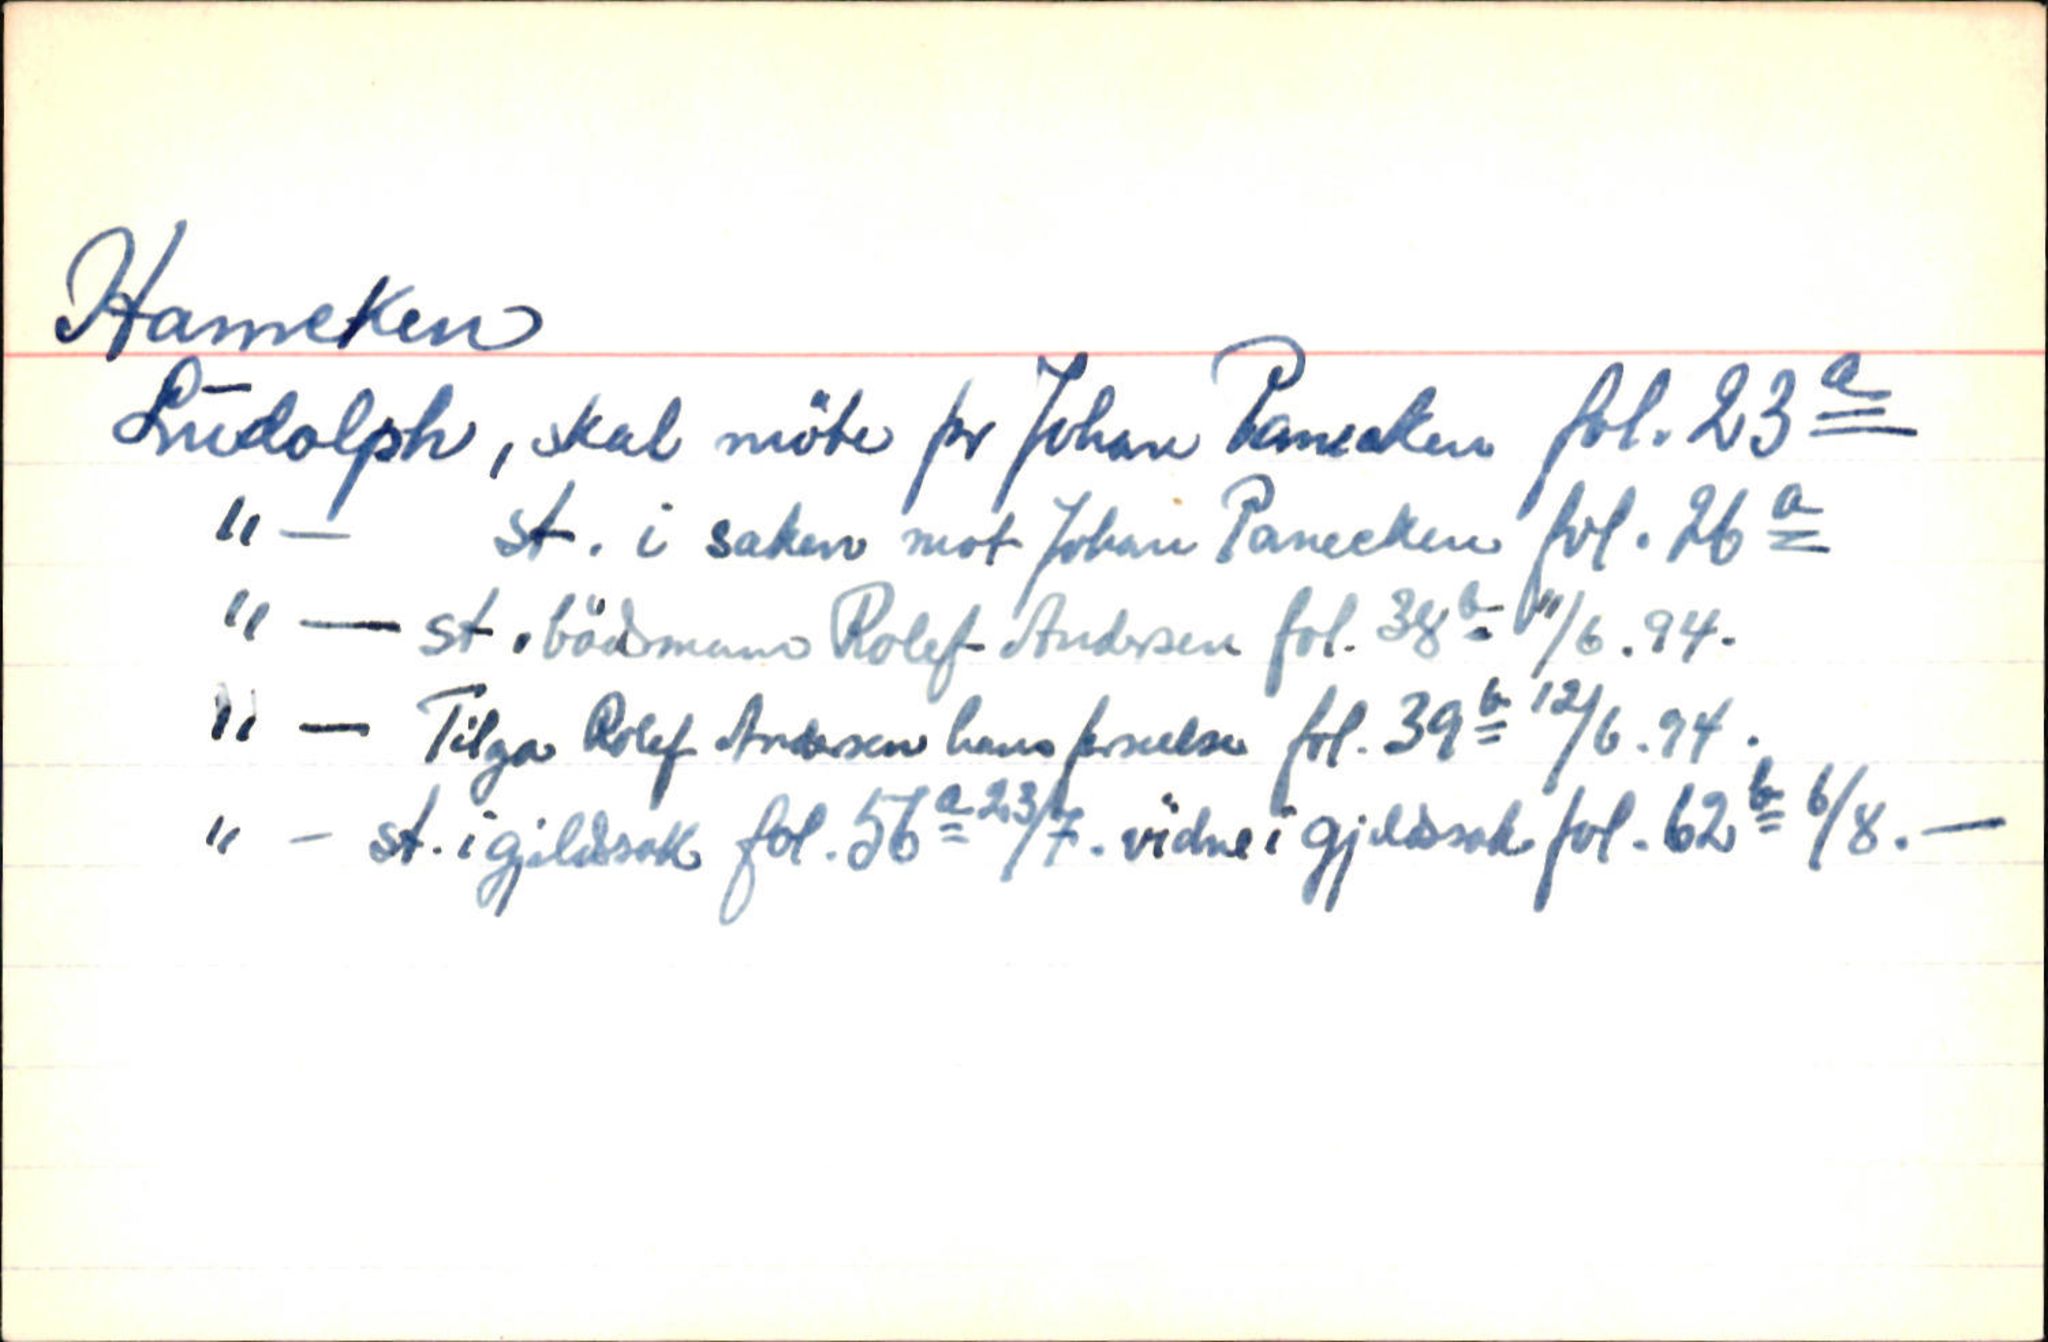 Hameken
Ludolph, skal möte for Johan Panecken fol. 23 a
" — st. i saken mot Johan Panecken fol. 26 a
" — st. bödsmann Rolef Andersen fol. 38 b 11/6.94.
" — Tilga Rolef Andersen hans forseelse fol. 39 b 12/6.94.
" — st. i gjeldssak fol. 56 a 23/7. vidne i gjeldssak fol. 62 b 6/8. —